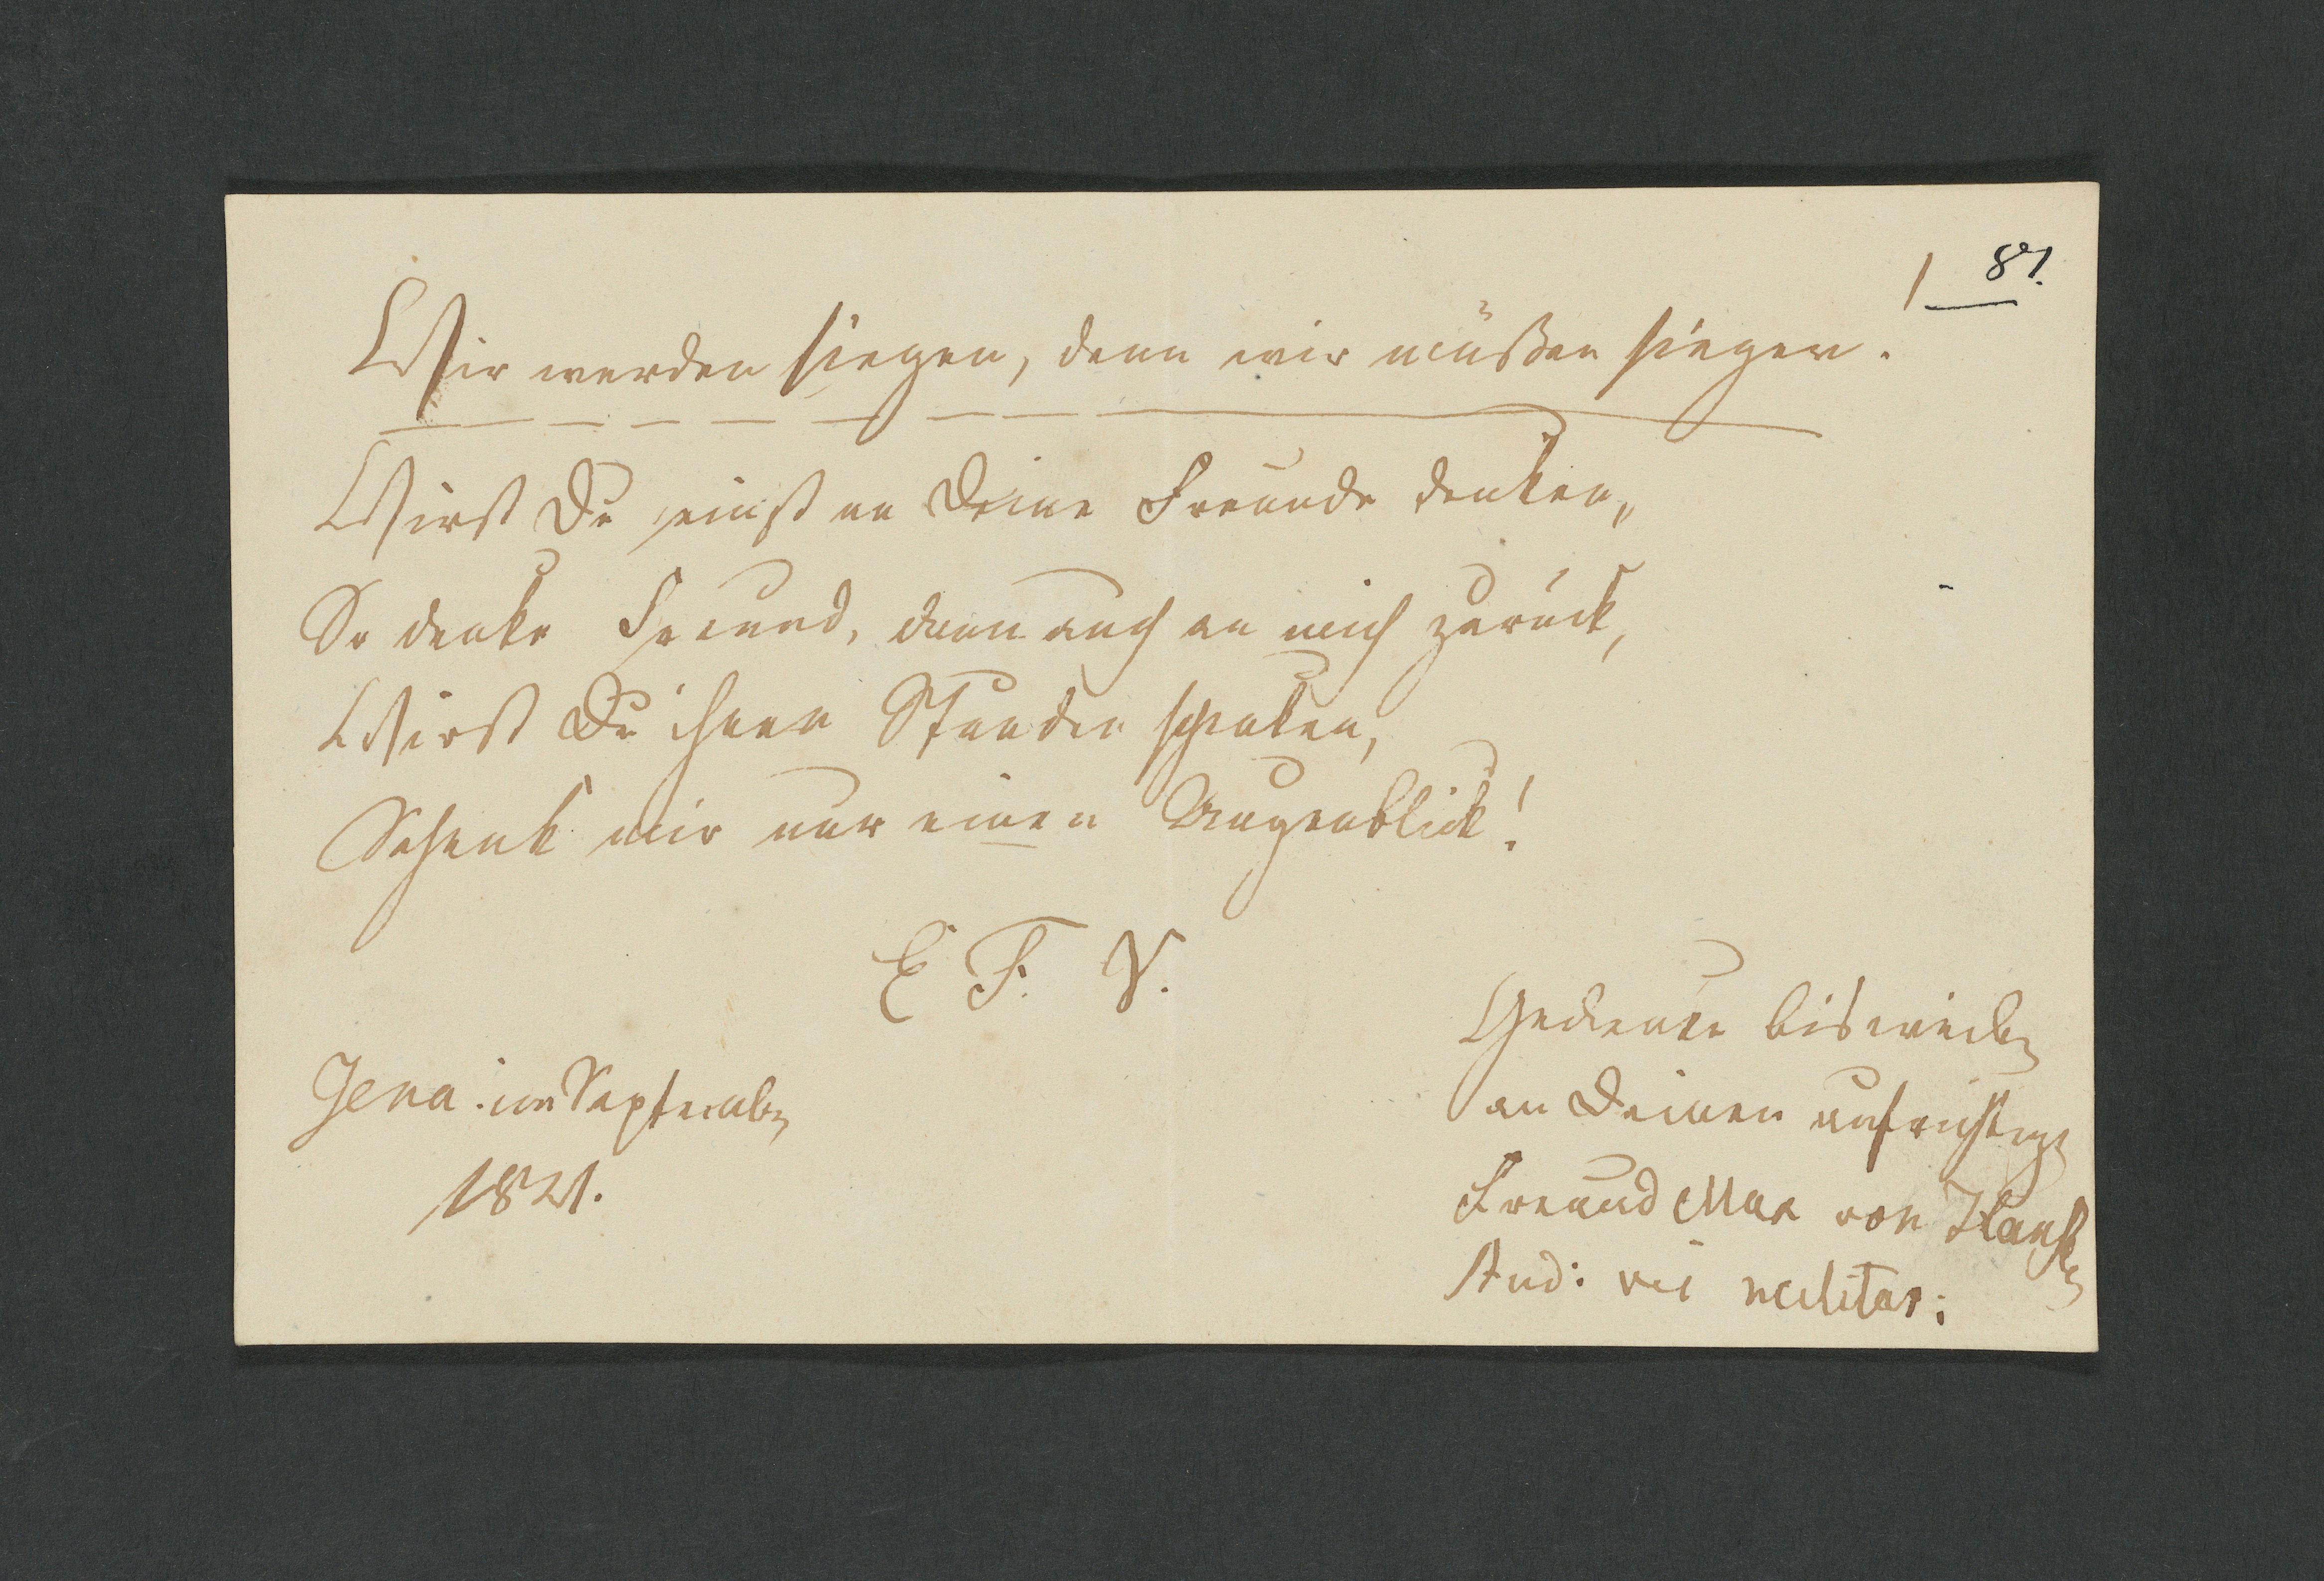 87.
Wir werden siegen, denn wir müßen siegen.
Wirst Du einst an Deine Freunde denken,
So denke Freund, dann auch an mich zurück,
Wirst Du ihnen Stunden schenken,
Schenk mir nur einen Augenblick!
E. F. V.
Jena im September
1821.
Gedenke bisweilen
an Deinen aufrichtigen
Freund Max von
rei militar: